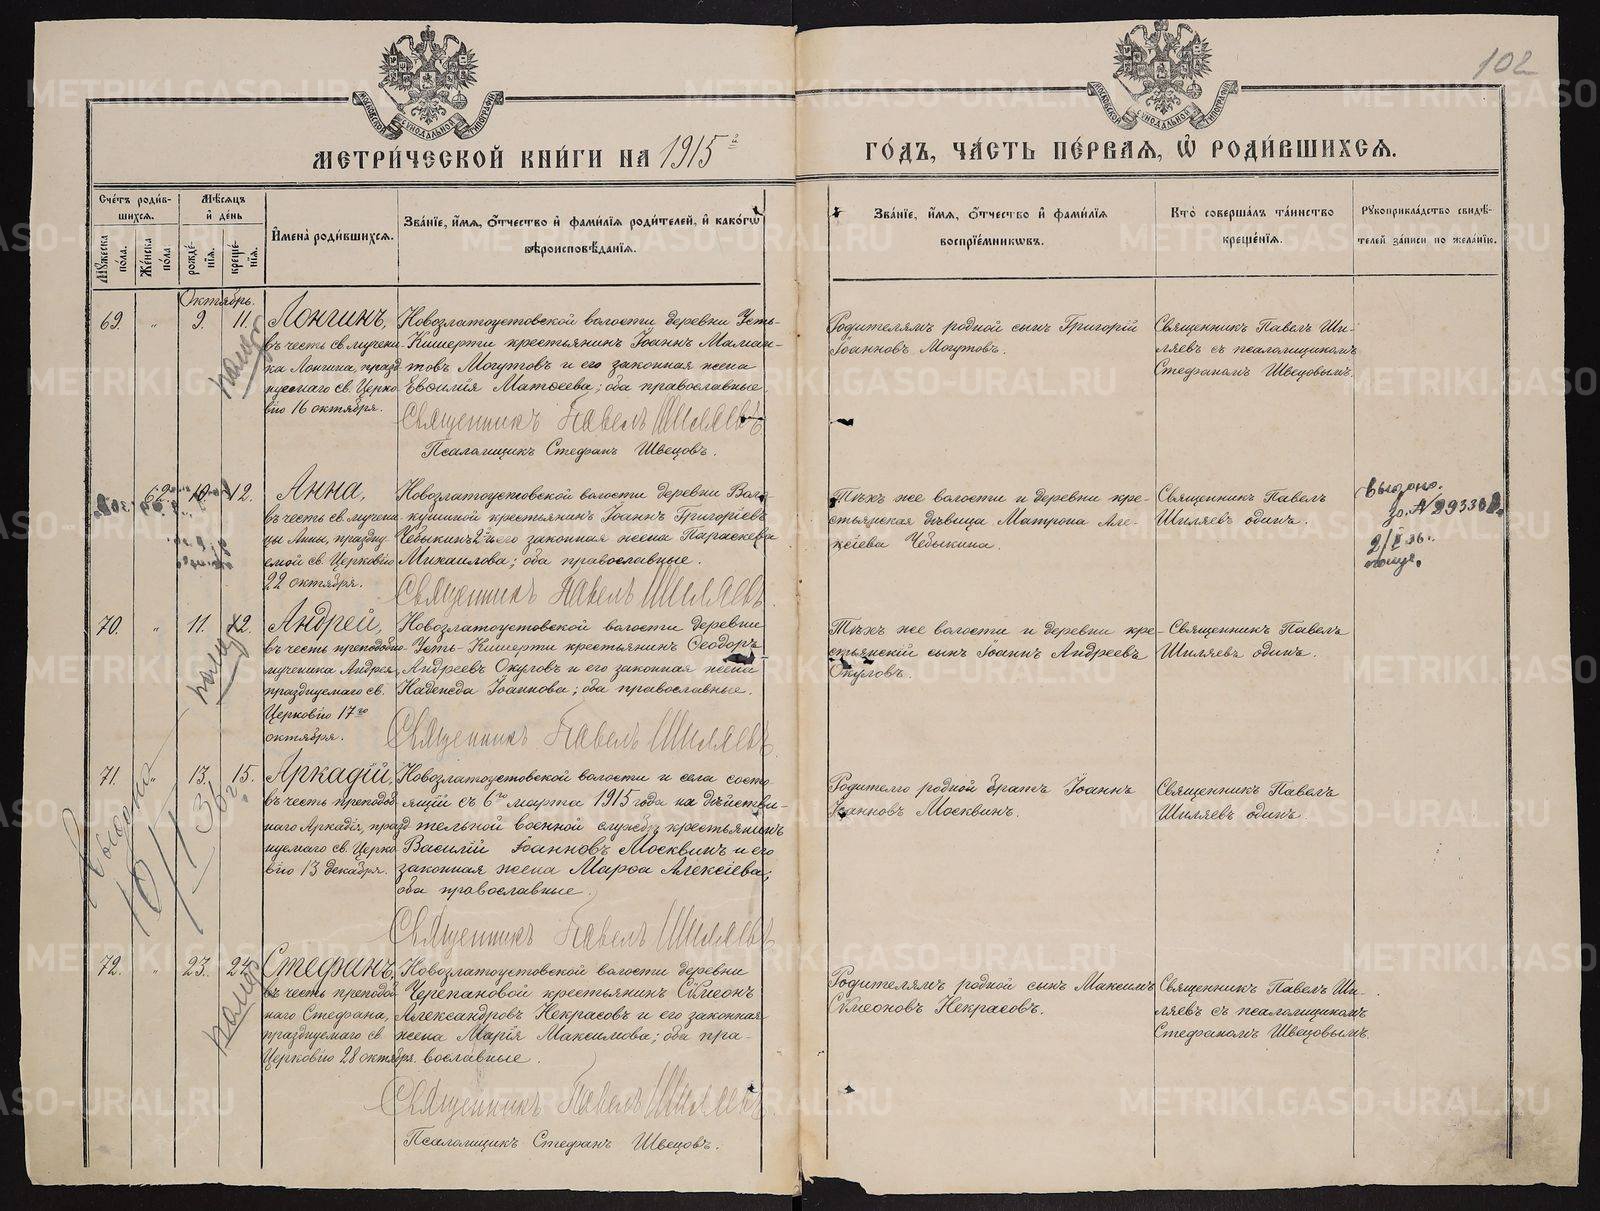 102
МЕТРИ́ЧЕСКОЙ КНИ́ГИ НА 1915 й
ГО́ДЪ, ЧА́СТЬ ПЕ́РВАЯ, Ѽ РОДИ́ВШИХСЯ.
Сче́тъ роди́в-
шихся.
Мѣ́сяцъ
и҆ де́нь
Мꙋ́жеска по́ла.
Же́нска по́ла.
рожде́нїя.
креще́нїя.
И҆мена̀ роди́вшихся.
Зва́нїе, и҆́мя, ѻ҆́тчество и҆ фами́лїя роди́телей, и҆ како́гѡ
вѣроисповѣ́данїя.
Зва́нїе, и҆́мя, ѻ҆́тчество и҆ фами́лїя
воспрїе́мникѡвъ.
Кто̀ соверша́лъ та́инство
креще́нїя.
Рꙋкоприкла́дство свидѣ́-
телей за́писи по жела́нїю.
Октябрь.
69.
"
9.
11.
Лонгинъ,
въ честь св. мучени-
ка Лонгина, празд
нуемаго св. Церко
вію 16 октября.
Новозлатоустовской волости деревни Усть-
Кишерти крестьянинъ Іоаннъ Маман-
товъ Могутовъ и его законная жена
Евѳимія Матѳеева; оба православные
Священникъ Павелъ Шиляевъ
Псаломщикъ Стефанъ Швецовъ.
Родителямъ родной сынъ Григорій
Іоанновъ Могутовъ.
Священникъ Павелъ Ши-
ляевъ съ псаломщикомъ
Стефаномъ Швецовымъ.
62.
10.
12.
Анна,
въ честь св. мучени-
цы Анны, праздну
емой св. Церковію
22 октября.
Новозлатоустовской волости деревни
крестьянинъ Іоаннъ Григоріевъ
Чебыкинъ 2й и его законная жена Параскева
Михаилова; оба православные.
Священникъ Павелъ Шиляевъ.
Тѣхъ же волости и деревни кре-
стьянская дѣвица Матрона Але-
ксіева Чебыкина.
Священникъ Павелъ
Шиляевъ одинъ.
70.
"
11.
12.
Андрей,
въ честь преподобно-
мученика Андрея,
празднуемаго св.
Церковію 17го
октября.
Новозлатоустовской волости деревни
Усть-Кишерти крестьянинъ Ѳеодоръ
Андреевъ Окуловъ и его законная жена
Надежда Іоаннова; оба православные.
Священникъ Павелъ Шиляевъ
Тѣхъ же волости и деревни кре-
стьянскій сынъ Іоаннъ Андреевъ
Окуловъ.
Священникъ Павелъ
Шиляевъ одинъ.
71.
"
13.
15.
Аркадій,
въ честь преподоб
наго Аркадія, празд
нуемаго св. Церко
вію 13 декабря.
Новозлатоустовской волости и села состо-
ящій съ 6го марта 1915 года на дѣйстви-
тельной военной службѣ крестьянинъ
Василій Іоанновъ Москвинъ и его
законная жена Марѳа Алексіева;
оба православные.
Священникъ Павелъ Шиляевъ
Родителю родной братъ Іоаннъ
Іоанновъ Москвинъ.
Священникъ Павелъ
Шиляевъ одинъ.
72.
"
23.
24.
Стефанъ,
въ честь преподоб
наго Стефана,
празднуемаго св.
Церковію 28 октября.
Новозлатоустовской волости деревни
Черепановой крестьянинъ Сѵмеонъ
Александровъ Некрасовъ и его законная
жена Марія Максимова; оба пра-
вославные.
Священникъ Павелъ Шиляевъ
Псаломщикъ Стефанъ Швецовъ.
Родителямъ родной сынъ Максимъ
Сѵмеоновъ Некрасовъ.
Священникъ Павелъ Ши-
ляевъ съ псаломщикомъ
Стефаномъ Швецовымъ.
METRIKI.GASO-URAL.RU